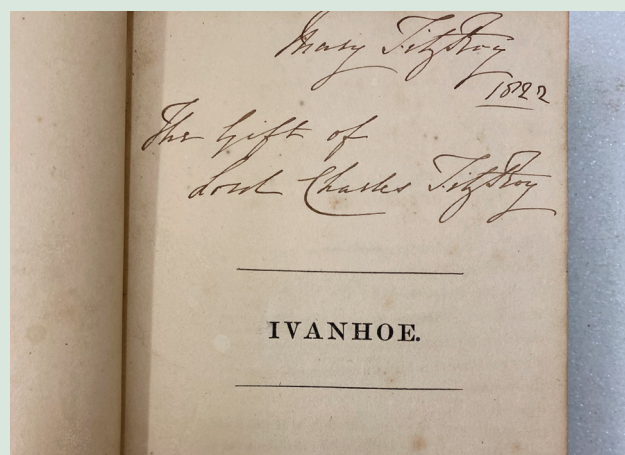 Mary FitzRoy
1822
The Gift of
Lord Charles FitzRoy
IVANHOE.